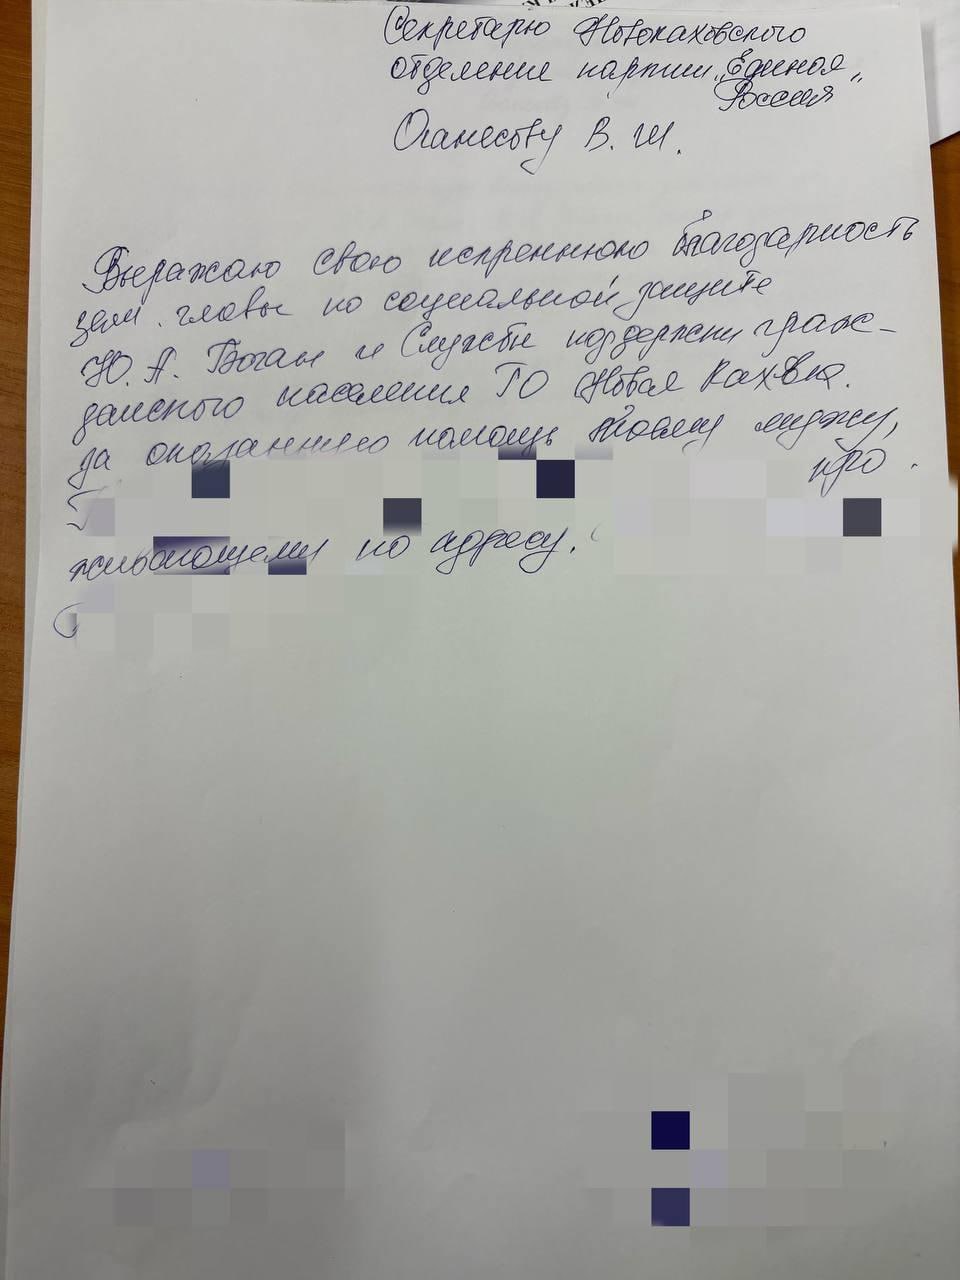 Секретарю Новокаховского
отделение партии „Единая
Россия"
Оганесову В. Ш.
Выражаю свою искреннюю благодарность
зам. главы по социальной защите
Ю. А. Боган и Службы поддержки граж-
данского населения ГО Новая Каховка.
за оказанную помощь моему муджу,
про
живающему по адресу.